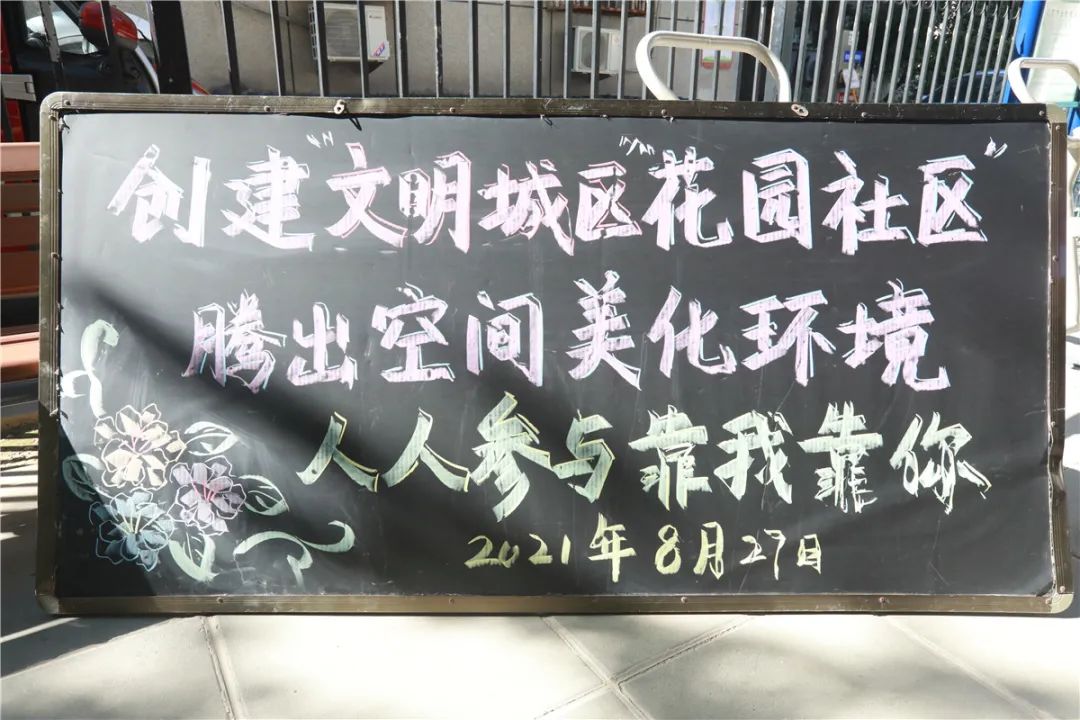 创建“文明城区”“花园社区”
腾出空间美化环境
人人参与靠我靠你
2021年8月27日